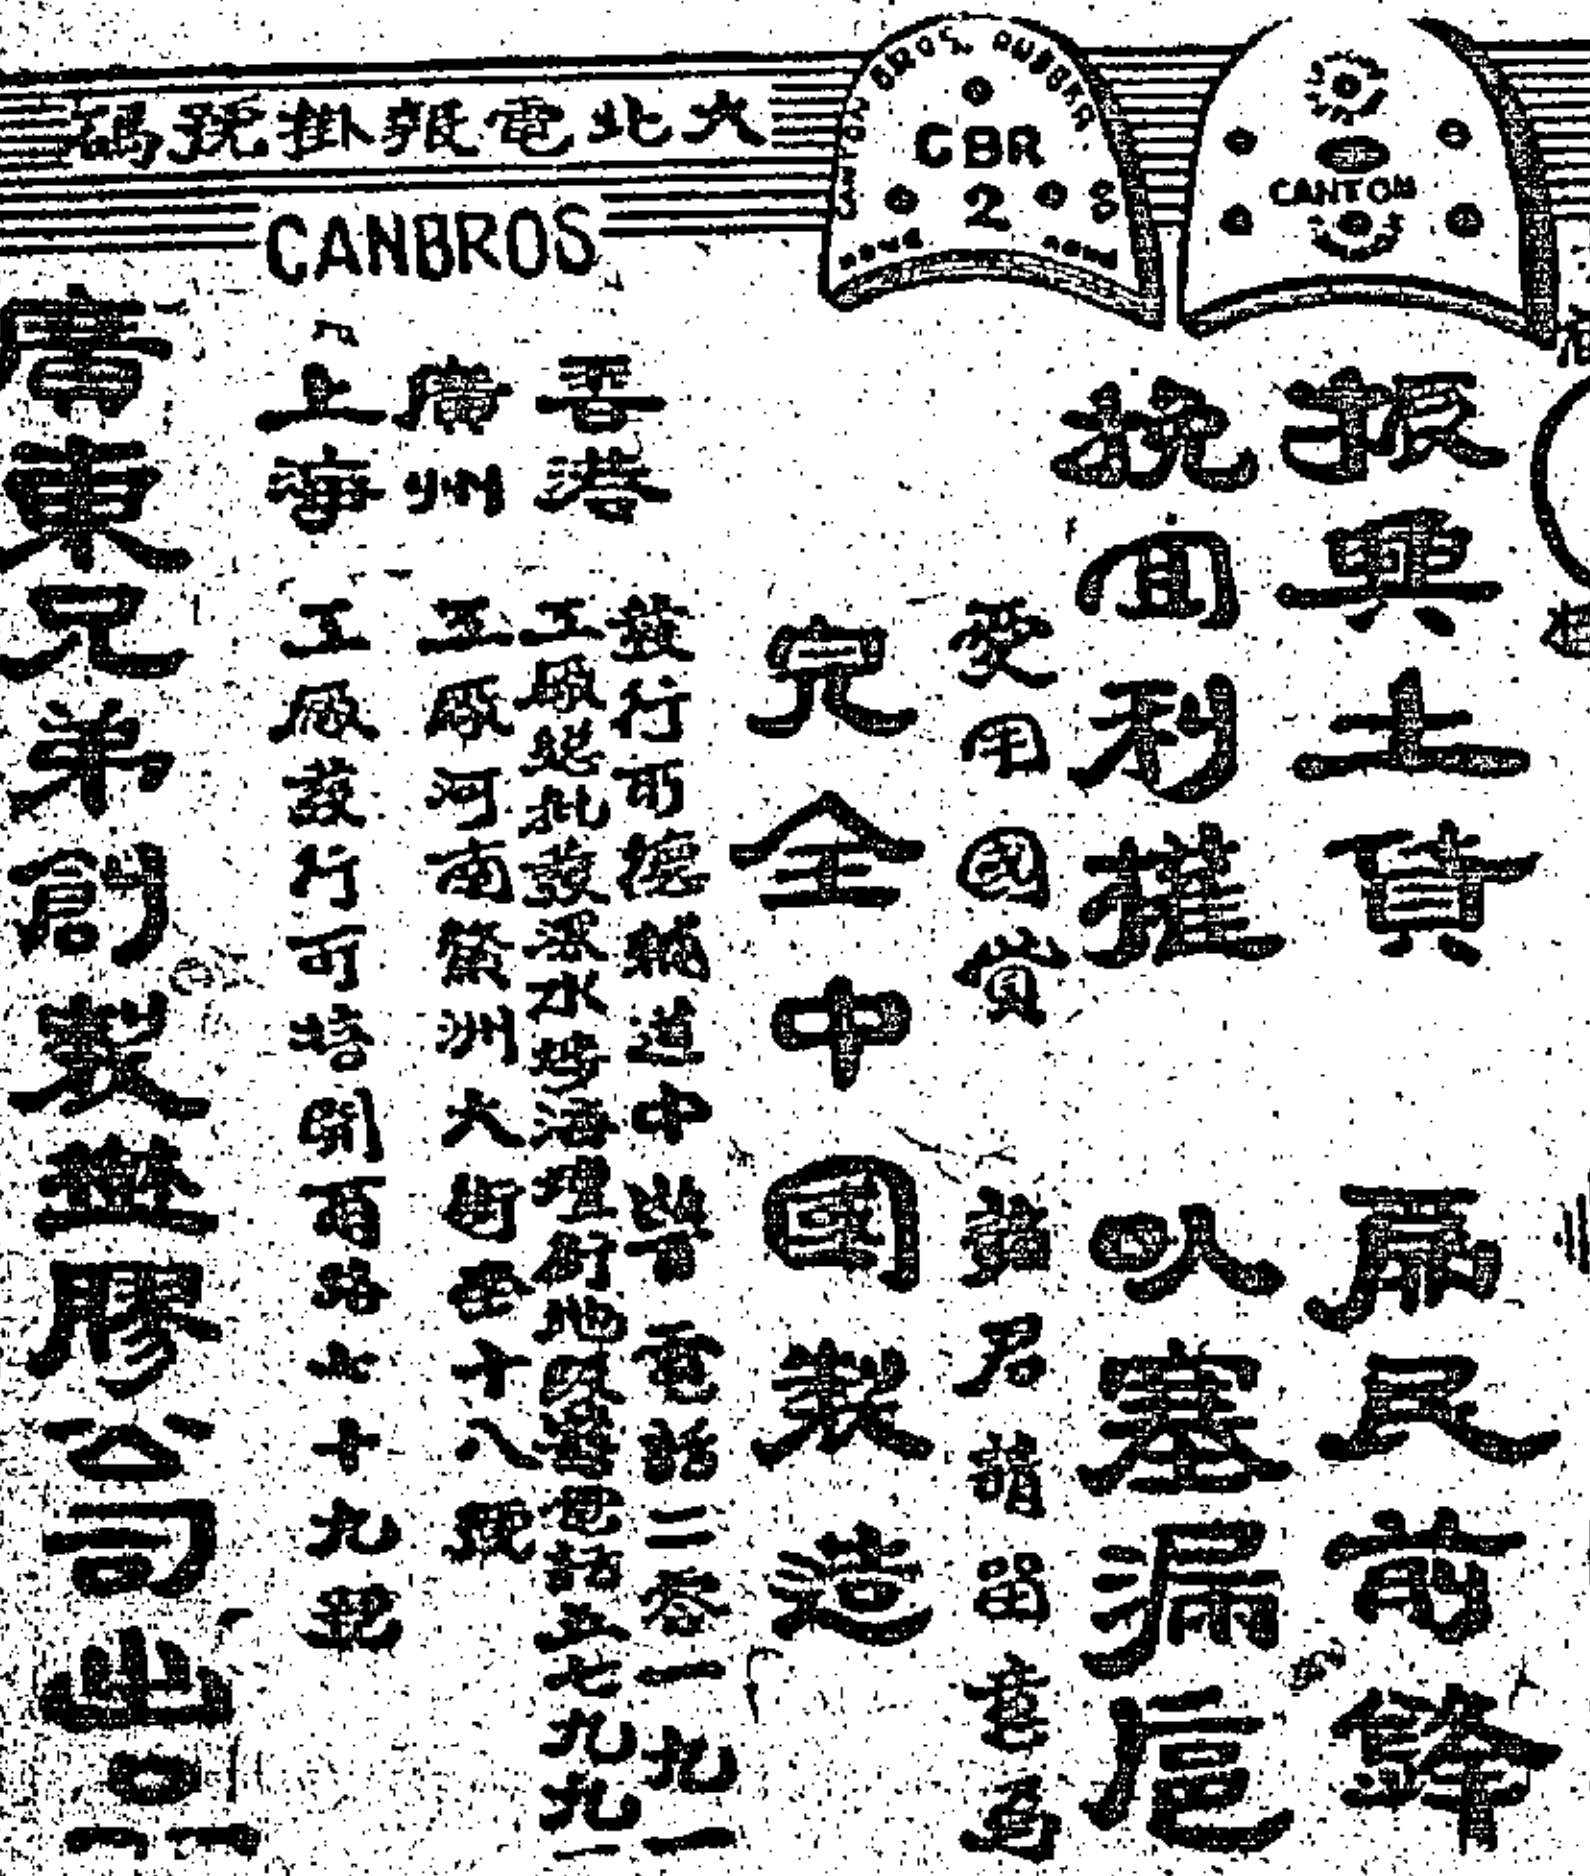 大北電報掛號碼
CANBROS
CANTON BROS. RUBBER
CBR
2
CANTON
振興土貨
為民前鋒
挽回利權
以塞漏巵
愛用國貨
諸君請留意焉
完全中國製造
香港
發行所德輔道中 電話二零一九一
工廠總批發深水埗海壇街地 電話五七九九一
廣州
工廠河南鰲洲大街西十八號
上海
工廠發行所塘開西路七十九號
廣東兄弟創製樹膠公司出口